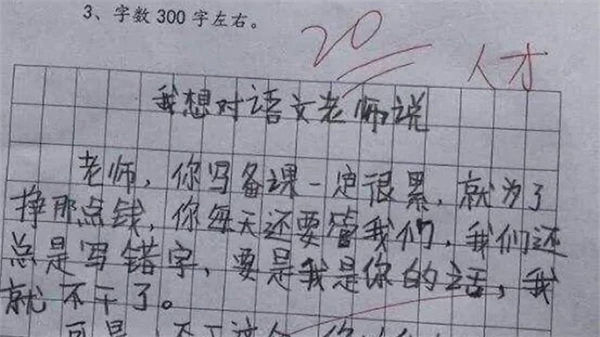 3、字数300字左右。
20
人才
我想对语文老师说
老师，你写备课一定很累，就为了
挣那点钱，你每天还要管我们，我们还
总是写错字，要是我是你的话，我
就不干了。
可是，不干这个，你